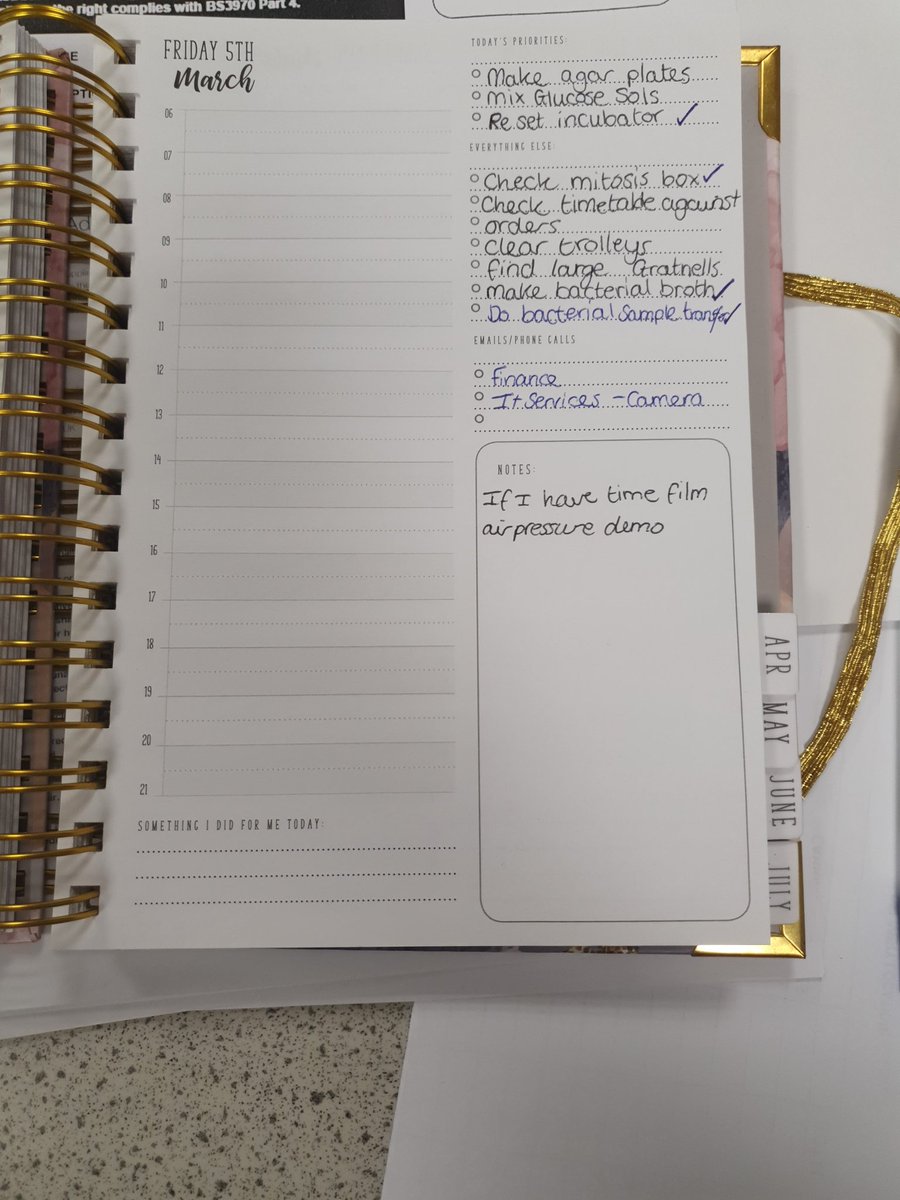 the right complies with BS3970 Part 4.
FRIDAY 5TH
March
06
07
08
09
10
11
12
13
14
15
16
17
18
19
20
21
SOMETHING I DID FOR ME TODAY:
TODAY'S PRIORITIES:
Make agar plates
mix Glucose Sols
Reset incubator ✓
EVERYTHING ELSE:
Check mitosis box ✓
Check timetable against
orders
clear trolleys
find large Gratnells
make bacterial broth ✓
Do bacterial Sample ✓
EMAILS/PHONE CALLS
Finance
It Services - Camera
NOTES:
If I have time film
air pressure demo
APR
MAY
JUNE
JULY